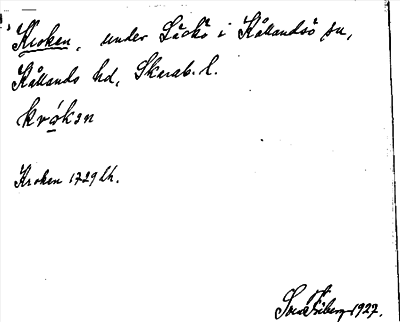 Kroken, under Läckö i Kållandsö sn,
Kållands hd, Skarab. l.
krókən
Kroken 1729 lk.
Sven Friberg 1927.